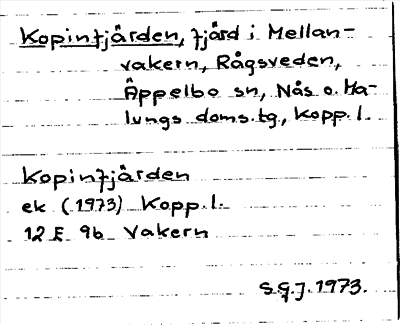 Kopinfjärden, fjärd i Mellan-
vakern, Rågsveden,
Äppelbo sn, Nås o. Ma-
lungs doms.tg., Kopp. l.
Kopinfjärden
ek (1973) Kopp. l.
12 E 9b Vakern
S.G.J. 1973.